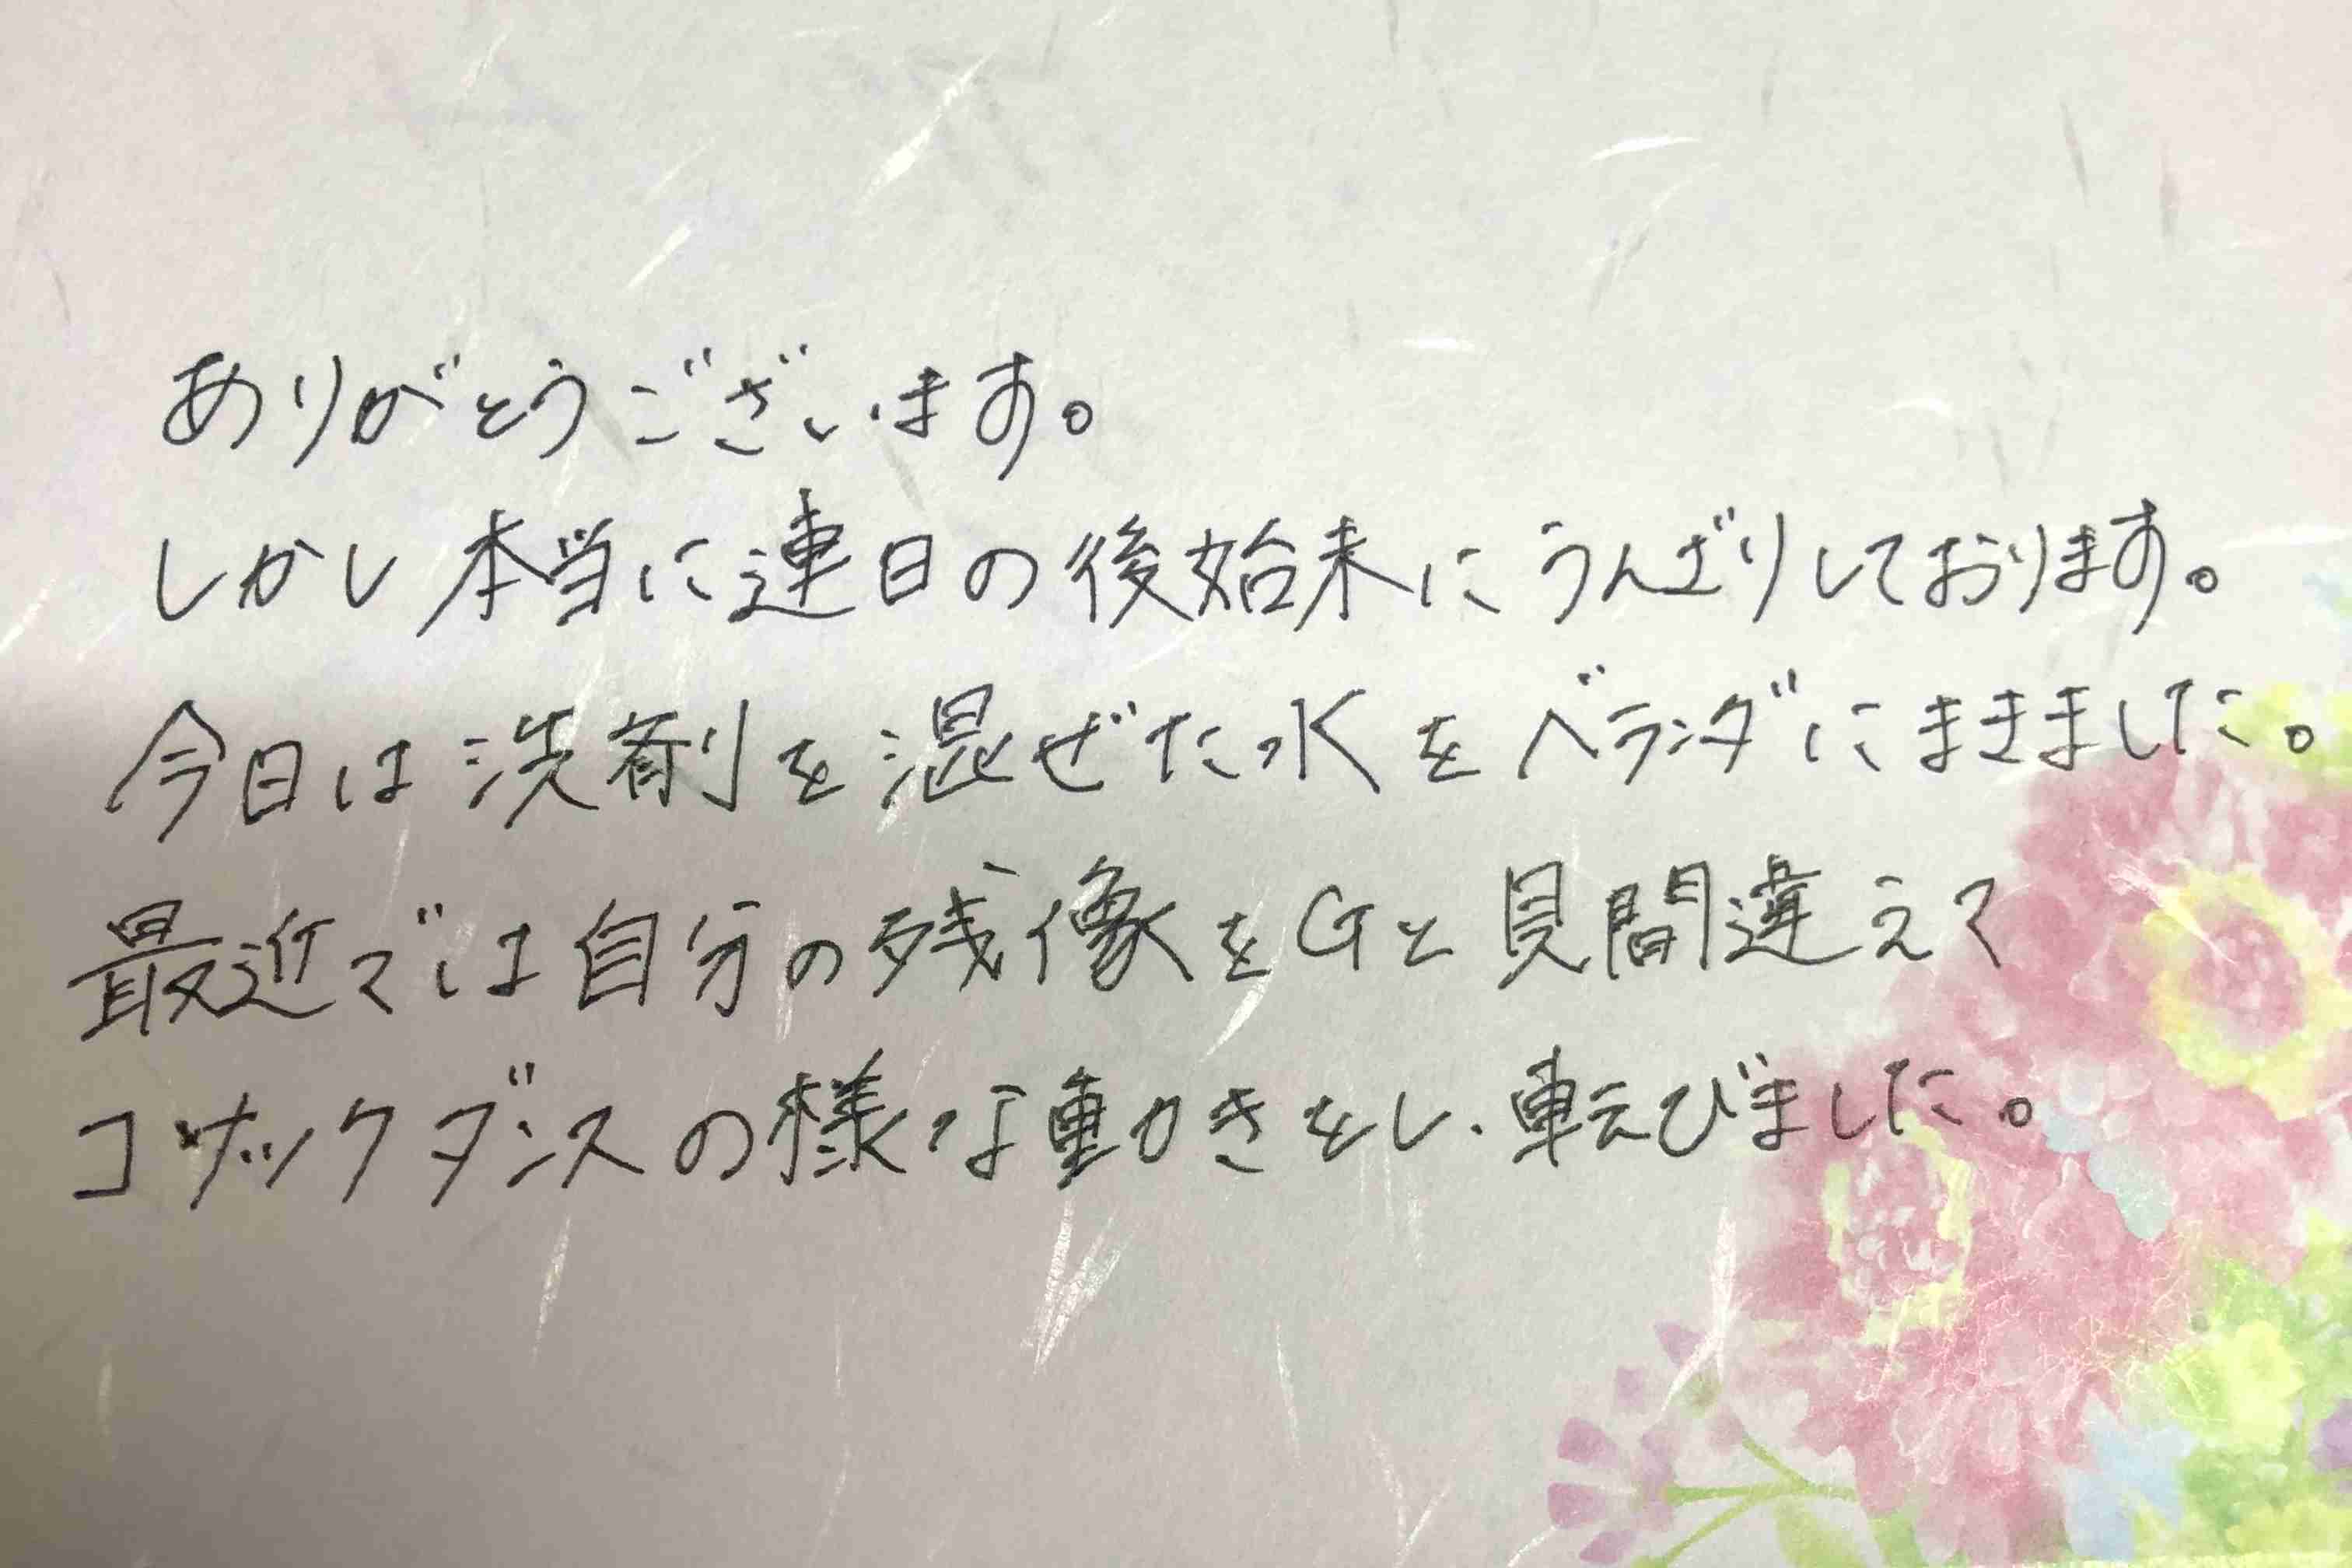 ありがとうございます。
しかし本当に連日の後始末にうんざりしております。
今日は洗剤を混ぜた水をベランダにまきました。
最近では自分の残像をGと見間違えて
コサックダンスの様な動きをし、転びました。